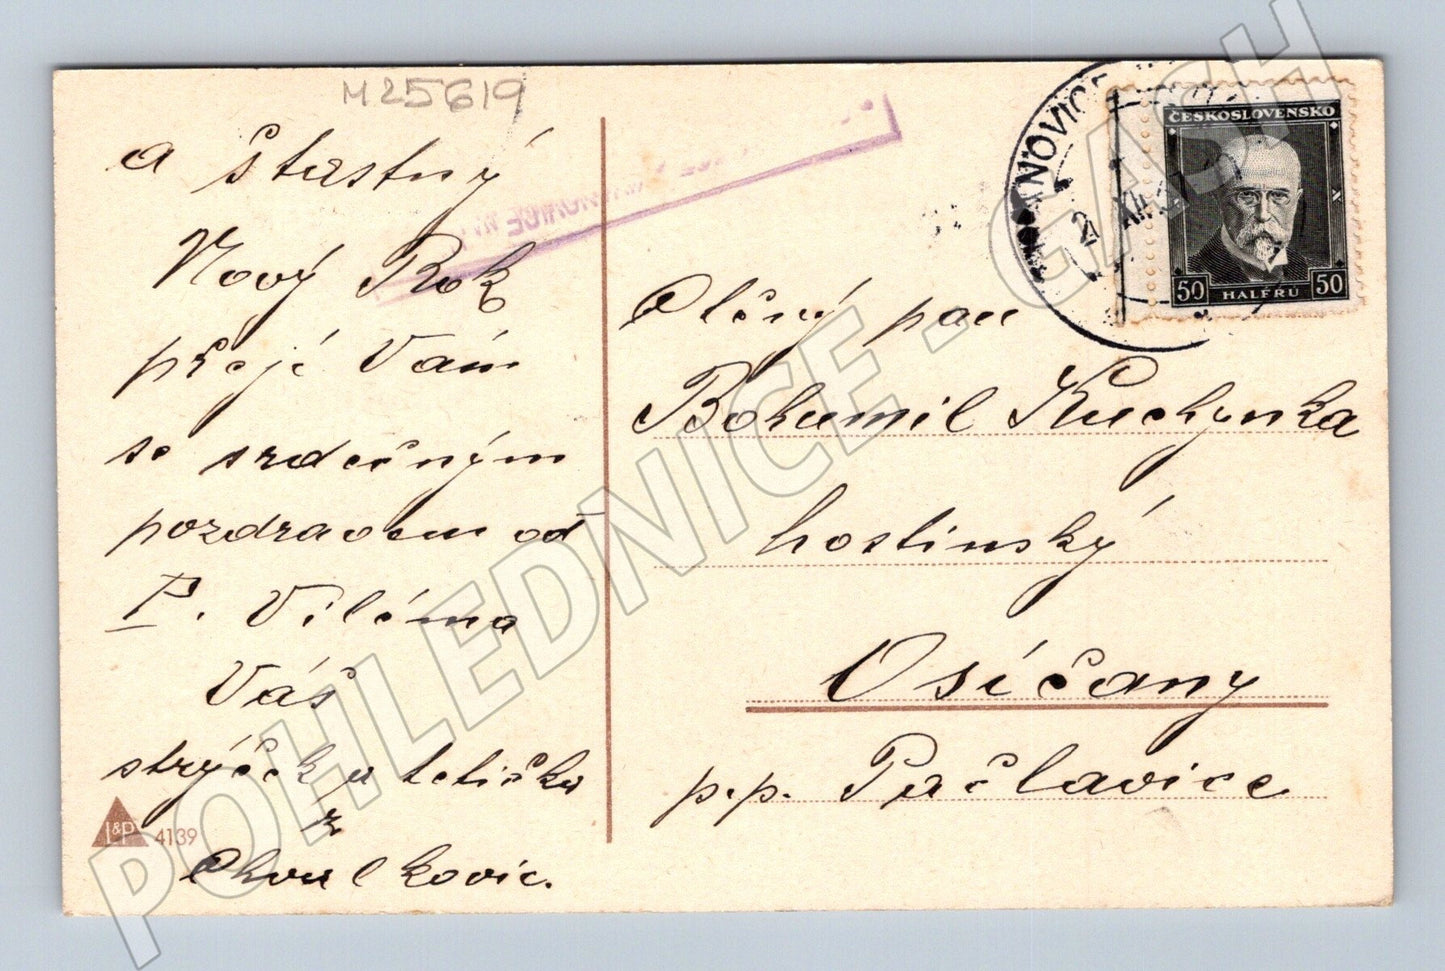 M25619
a šťastný
Nový Rok
přeje Vám
se srdečným
pozdravem od
P. Viléma
Váš
strýček a tetička
z
Chvalkovic.
L&P 4139
NOVICE
XII
ČESKOSLOVENSKO
50 HALÉŘŮ 50
Ctěný pan
Bohumil Kuchynka
hostinský
Osíčany
p.p. Pačlavice
POHLEDNICE - CASH